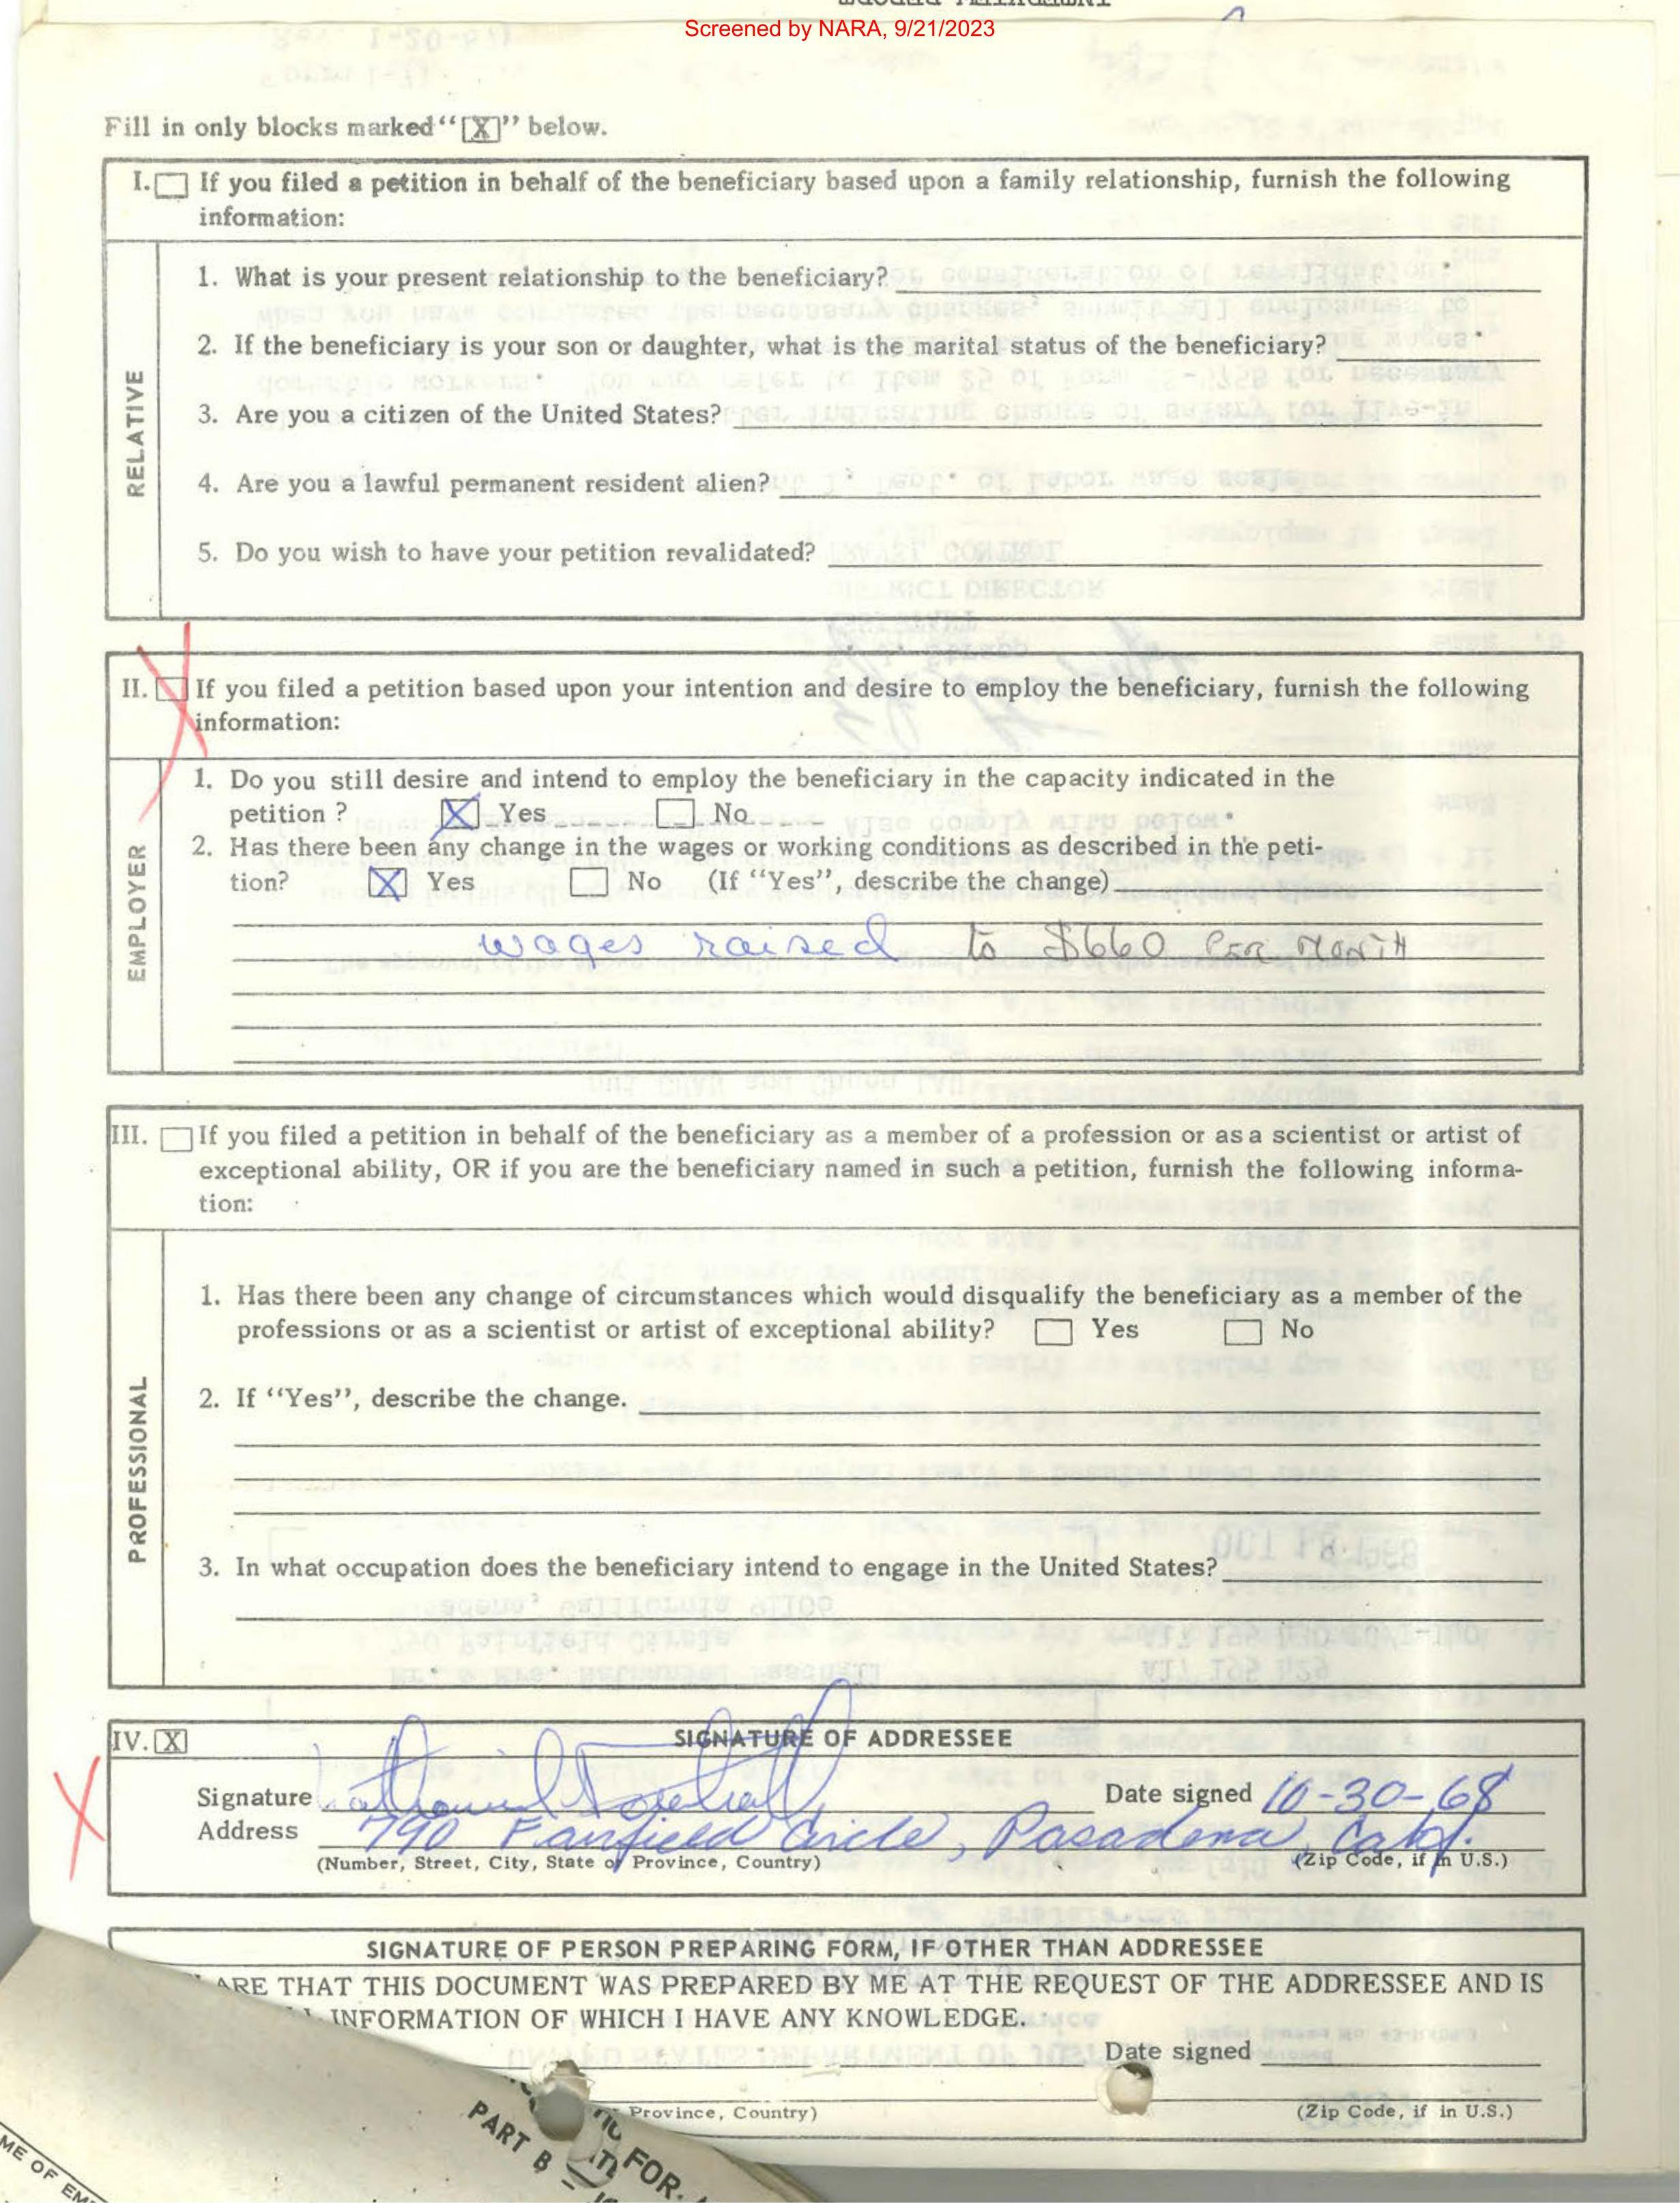 Screened by NARA, 9/21/2023
Fill in only blocks marked “[X]” below.
I. If you filed a petition in behalf of the beneficiary based upon a family relationship, furnish the following
information:
RELATIVE
1. What is your present relationship to the beneficiary?
2. If the beneficiary is your son or daughter, what is the marital status of the beneficiary?
3. Are you a citizen of the United States?
4. Are you a lawful permanent resident alien?
5. Do you wish to have your petition revalidated?
II. If you filed a petition based upon your intention and desire to employ the beneficiary, furnish the following
information:
EMPLOYER
1. Do you still desire and intend to employ the beneficiary in the capacity indicated in the
petition ? X Yes No
2. Has there been any change in the wages or working conditions as described in the peti-
tion? X Yes No (If “Yes”, describe the change)
wages raised to $660 PER MONTH
III. If you filed a petition in behalf of the beneficiary as a member of a profession or as a scientist or artist of
exceptional ability, OR if you are the beneficiary named in such a petition, furnish the following informa-
tion:
PROFESSIONAL
1. Has there been any change of circumstances which would disqualify the beneficiary as a member of the
professions or as a scientist or artist of exceptional ability? Yes No
2. If “Yes”, describe the change.
3. In what occupation does the beneficiary intend to engage in the United States?
IV. X SIGNATURE OF ADDRESSEE
Signature Date signed 10-30-68
Address 790 Fairfield Circle, Pasadena, Calif.
(Number, Street, City, State or Province, Country) (Zip Code, if in U.S.)
SIGNATURE OF PERSON PREPARING FORM, IF OTHER THAN ADDRESSEE
ARE THAT THIS DOCUMENT WAS PREPARED BY ME AT THE REQUEST OF THE ADDRESSEE AND IS
INFORMATION OF WHICH I HAVE ANY KNOWLEDGE.
Date signed
Province, Country) (Zip Code, if in U.S.)
PART B
FOR
ME OF EM